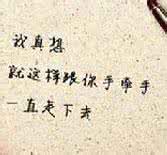 我真想
就这样跟你手牵手
一直走下去